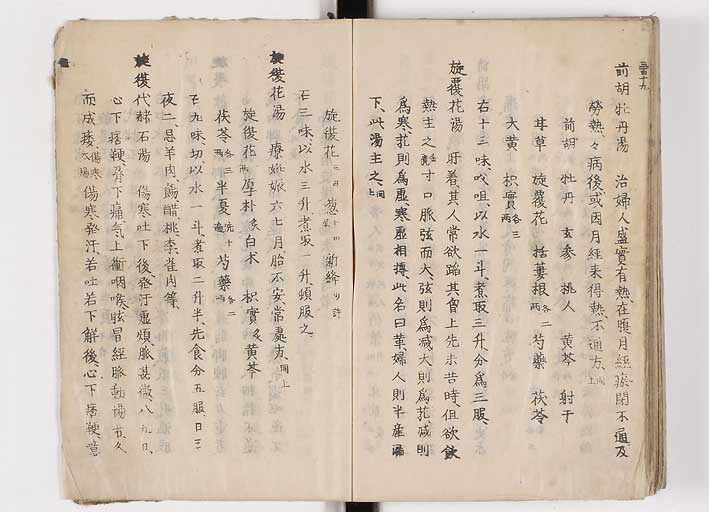 三百十九
前胡牡丹湯 治婦人盛實有熱在腹月經瘀閉不通及
勞熱々病後或因月經来得熱不通方同上
前胡 牡丹 玄参 桃人 黄芩 射干
甘草 旋覆花 括蔞根各二兩 芍藥 茯苓
大黄 枳實各三兩
右十三味㕮咀以水一斗煮取三升分為三服
旋覆花湯 肝着其人常欲蹈其胷上先未苦時但欲飲
熱主之 寸口脈弦而大弦則為减大則為芤减則
為寒芤則為虚寒虚相摶此名曰革婦人則半産漏
下此湯主之同上
旋復花三兩 葱十四莖 新絳少許
右三味以水三升煮取一升頓服之
旋復花湯 療妊娠六七月胎不安常處方同上
旋復花一兩 厚朴炙 白朮 枳實炙 黄芩
茯苓各三兩 半夏洗十遍 芍藥各二兩
右九味切以水一斗煮取二升半先食分五服日三
夜二忌羊肉餳醋桃李雀肉等
旋復代赭石湯 傷寒吐下後發汗虚煩脈甚微八九日
心下痞鞕脅下痛気上衝咽喉眩冒經脈動惕者久
而成痿 傷寒發汗若吐若下解後心下痞鞕噫